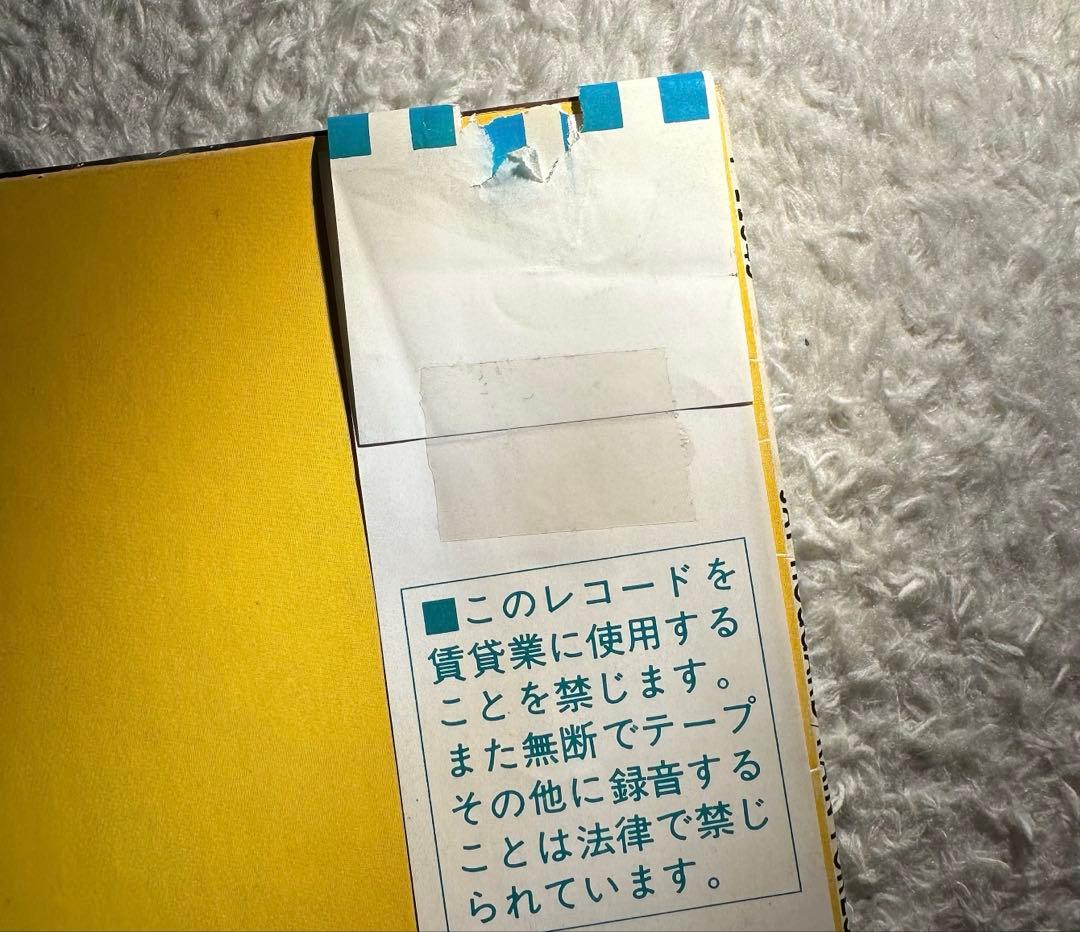 ■このレコードを
賃貸業に使用する
ことを禁じます。
また無断でテープ
その他に録音する
ことは法律で禁じ
られています。